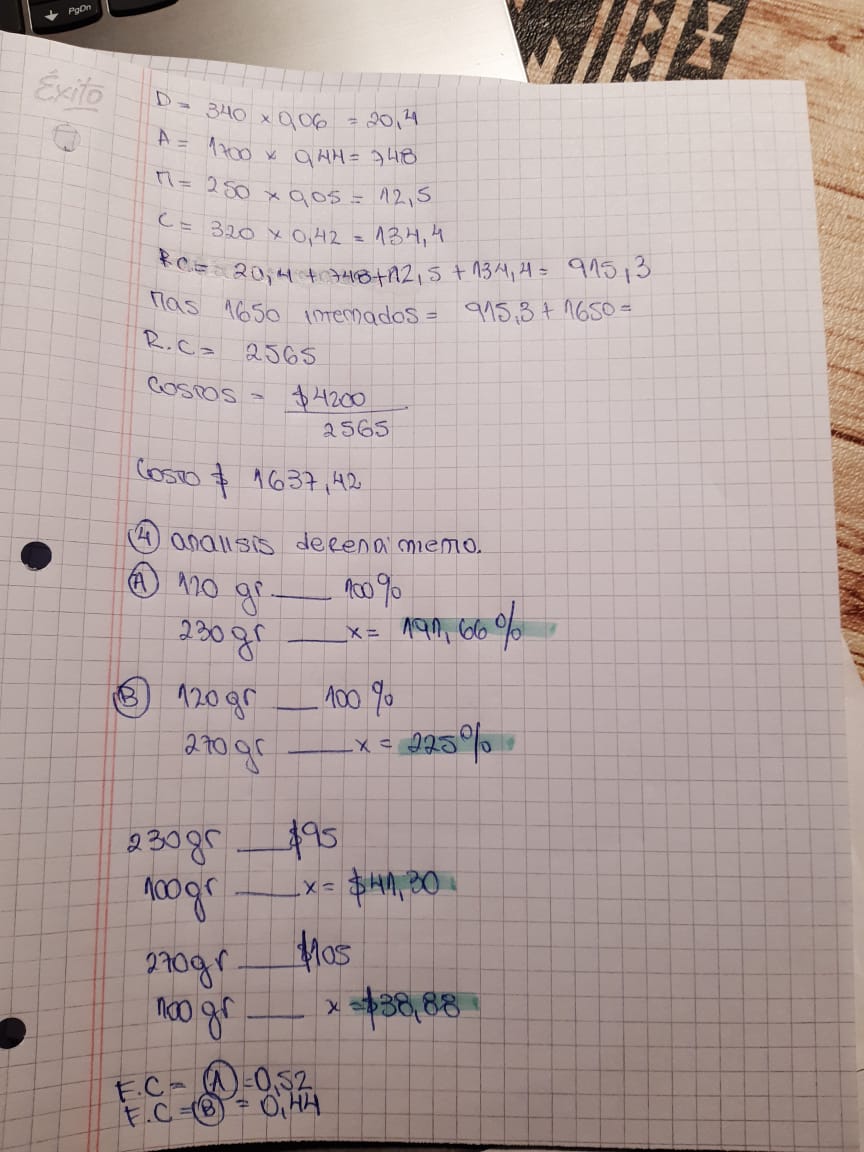 PgDn
Éxito
D = 340 x 0,06 = 20,4
A = 1700 x 0,44 = 748
M = 250 x 0,05 = 12,5
C = 320 x 0,42 = 134,4
R C = 20,4 + 748 + 12,5 + 134,4 = 915,3
Mas 1650 internados = 915,3 + 1650 =
R.C = 2565
Costos = $4200
2565
Costo $ 1637,42
④ analisis de Rendimiento.
Ⓐ 120 gr ___ 100%
230 gr ___ x = 191,66%
Ⓑ 120 gr ___ 100%
270 gr ___ x = 225%
230 gr ___ $95
100 gr ___ x = $41,30
270 gr ___ $105
100 gr ___ x = $38,88
F.C = Ⓐ = 0,52
F.C = Ⓑ = 0,44